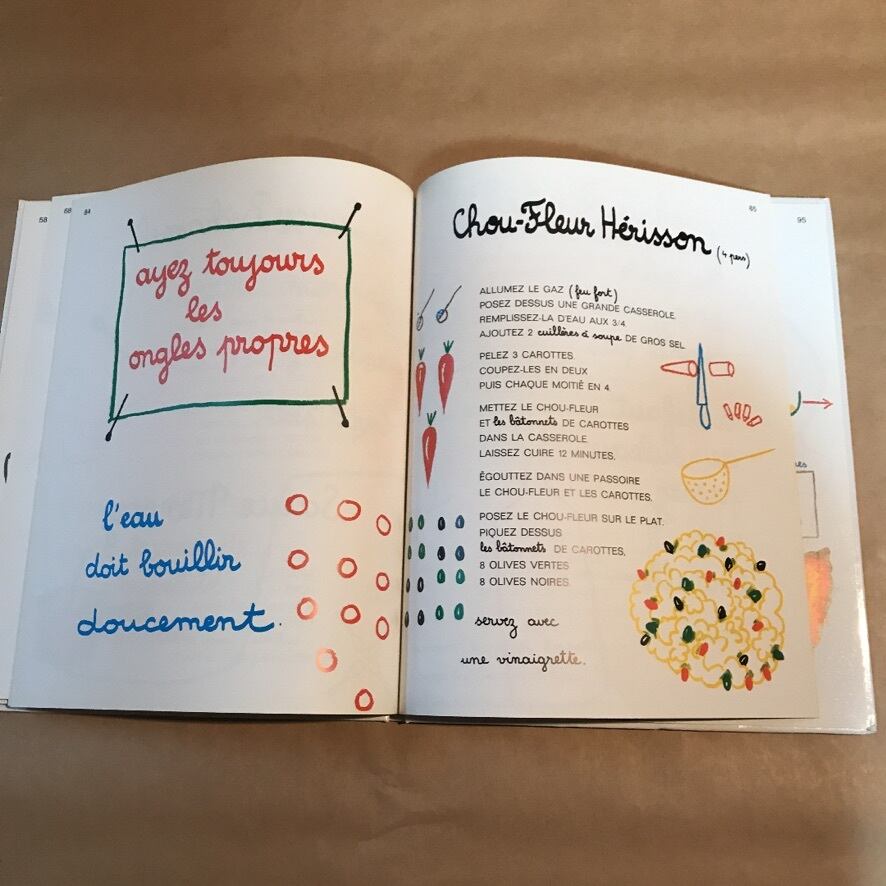 58
68
84
ayez toujours
les
ongles propres
l'eau
doit bouillir
doucement.
85
95
Chou-Fleur Hérisson (4 pers)
ALLUMEZ LE GAZ (feu fort)
POSEZ DESSUS UNE GRANDE CASSEROLE.
REMPLISSEZ-LA D'EAU AUX 3/4.
AJOUTEZ 2 cuillères à soupe DE GROS SEL
PELEZ 3 CAROTTES.
COUPEZ-LES EN DEUX
PUIS CHAQUE MOITIÉ EN 4.
METTEZ LE CHOU-FLEUR
ET les bâtonnets DE CAROTTES
DANS LA CASSEROLE.
LAISSEZ CUIRE 12 MINUTES.
ÉGOUTTEZ DANS UNE PASSOIRE
LE CHOU-FLEUR ET LES CAROTTES.
POSEZ LE CHOU-FLEUR SUR LE PLAT.
PIQUEZ DESSUS
les bâtonnets DE CAROTTES,
8 OLIVES VERTES
8 OLIVES NOIRES.
servez avec
une vinaigrette.